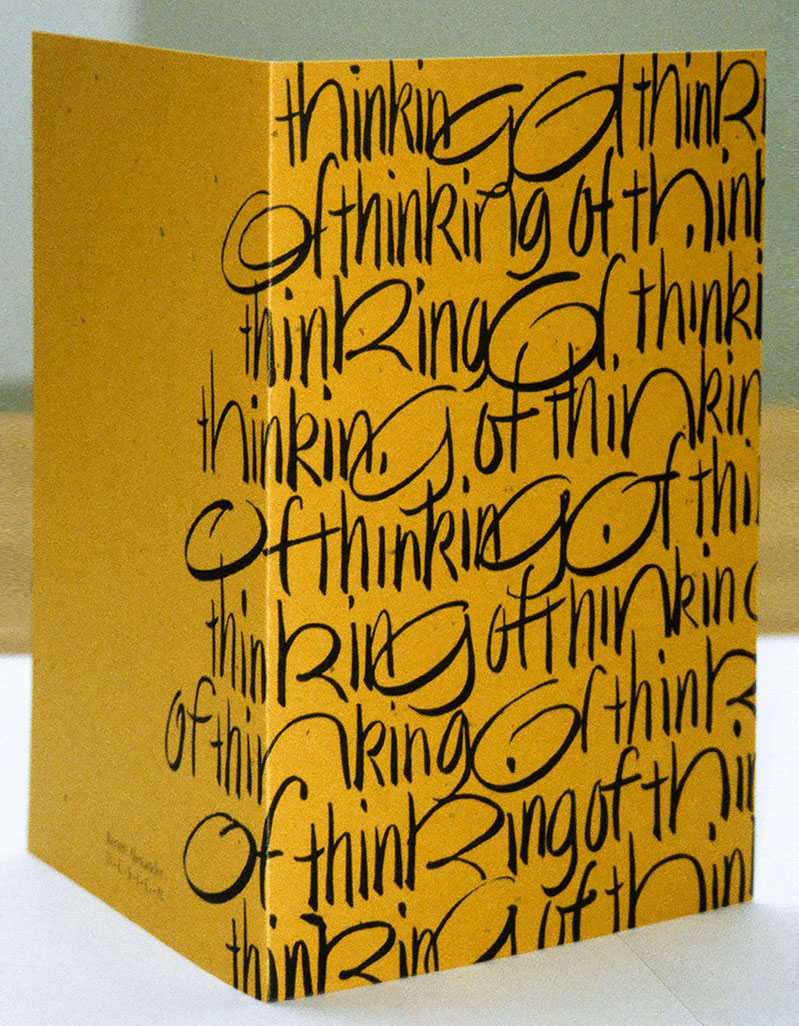 thinking of think
of thinking of thin
thinking of thinki
thinking of thinkin
of thinking of thi
thinking of thinkin
of thinking of think
of thinking of thin
thinking of thin
Alexander
D-E-S-I-G-N